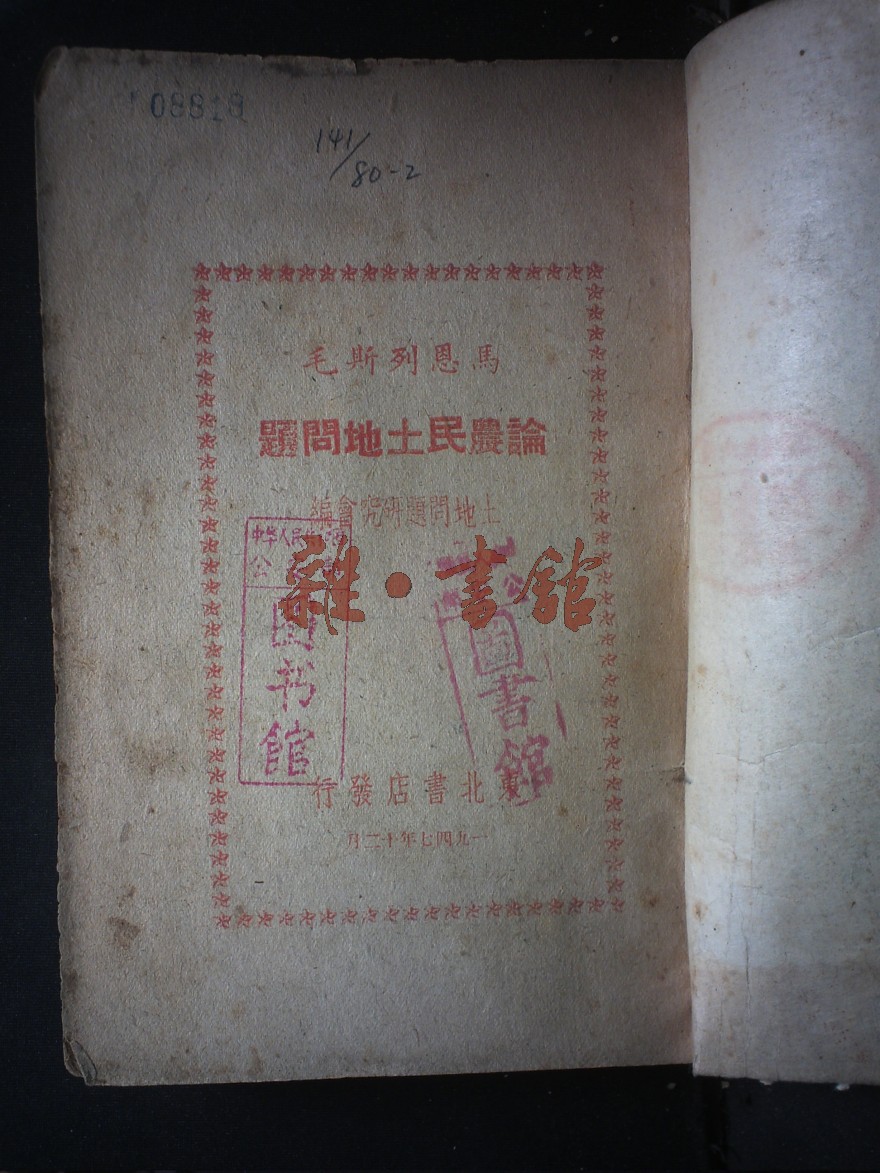 08818
141/
80-2
馬恩列斯毛
論農民土地問題
土地問題研究會編
雜·書館
图书馆
公
圖書館
東北書店發行
一九四七年十二月